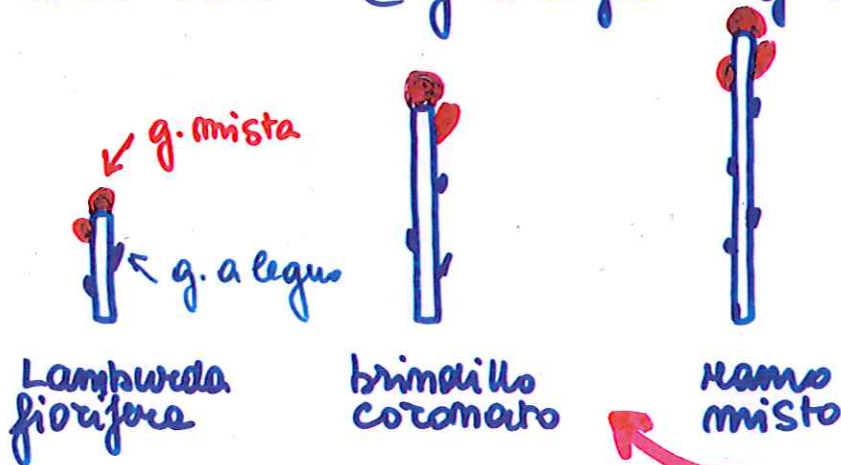 g. mista
g. a legno
Lamburda
fiorifera
brindillo
coronato
ramo
misto